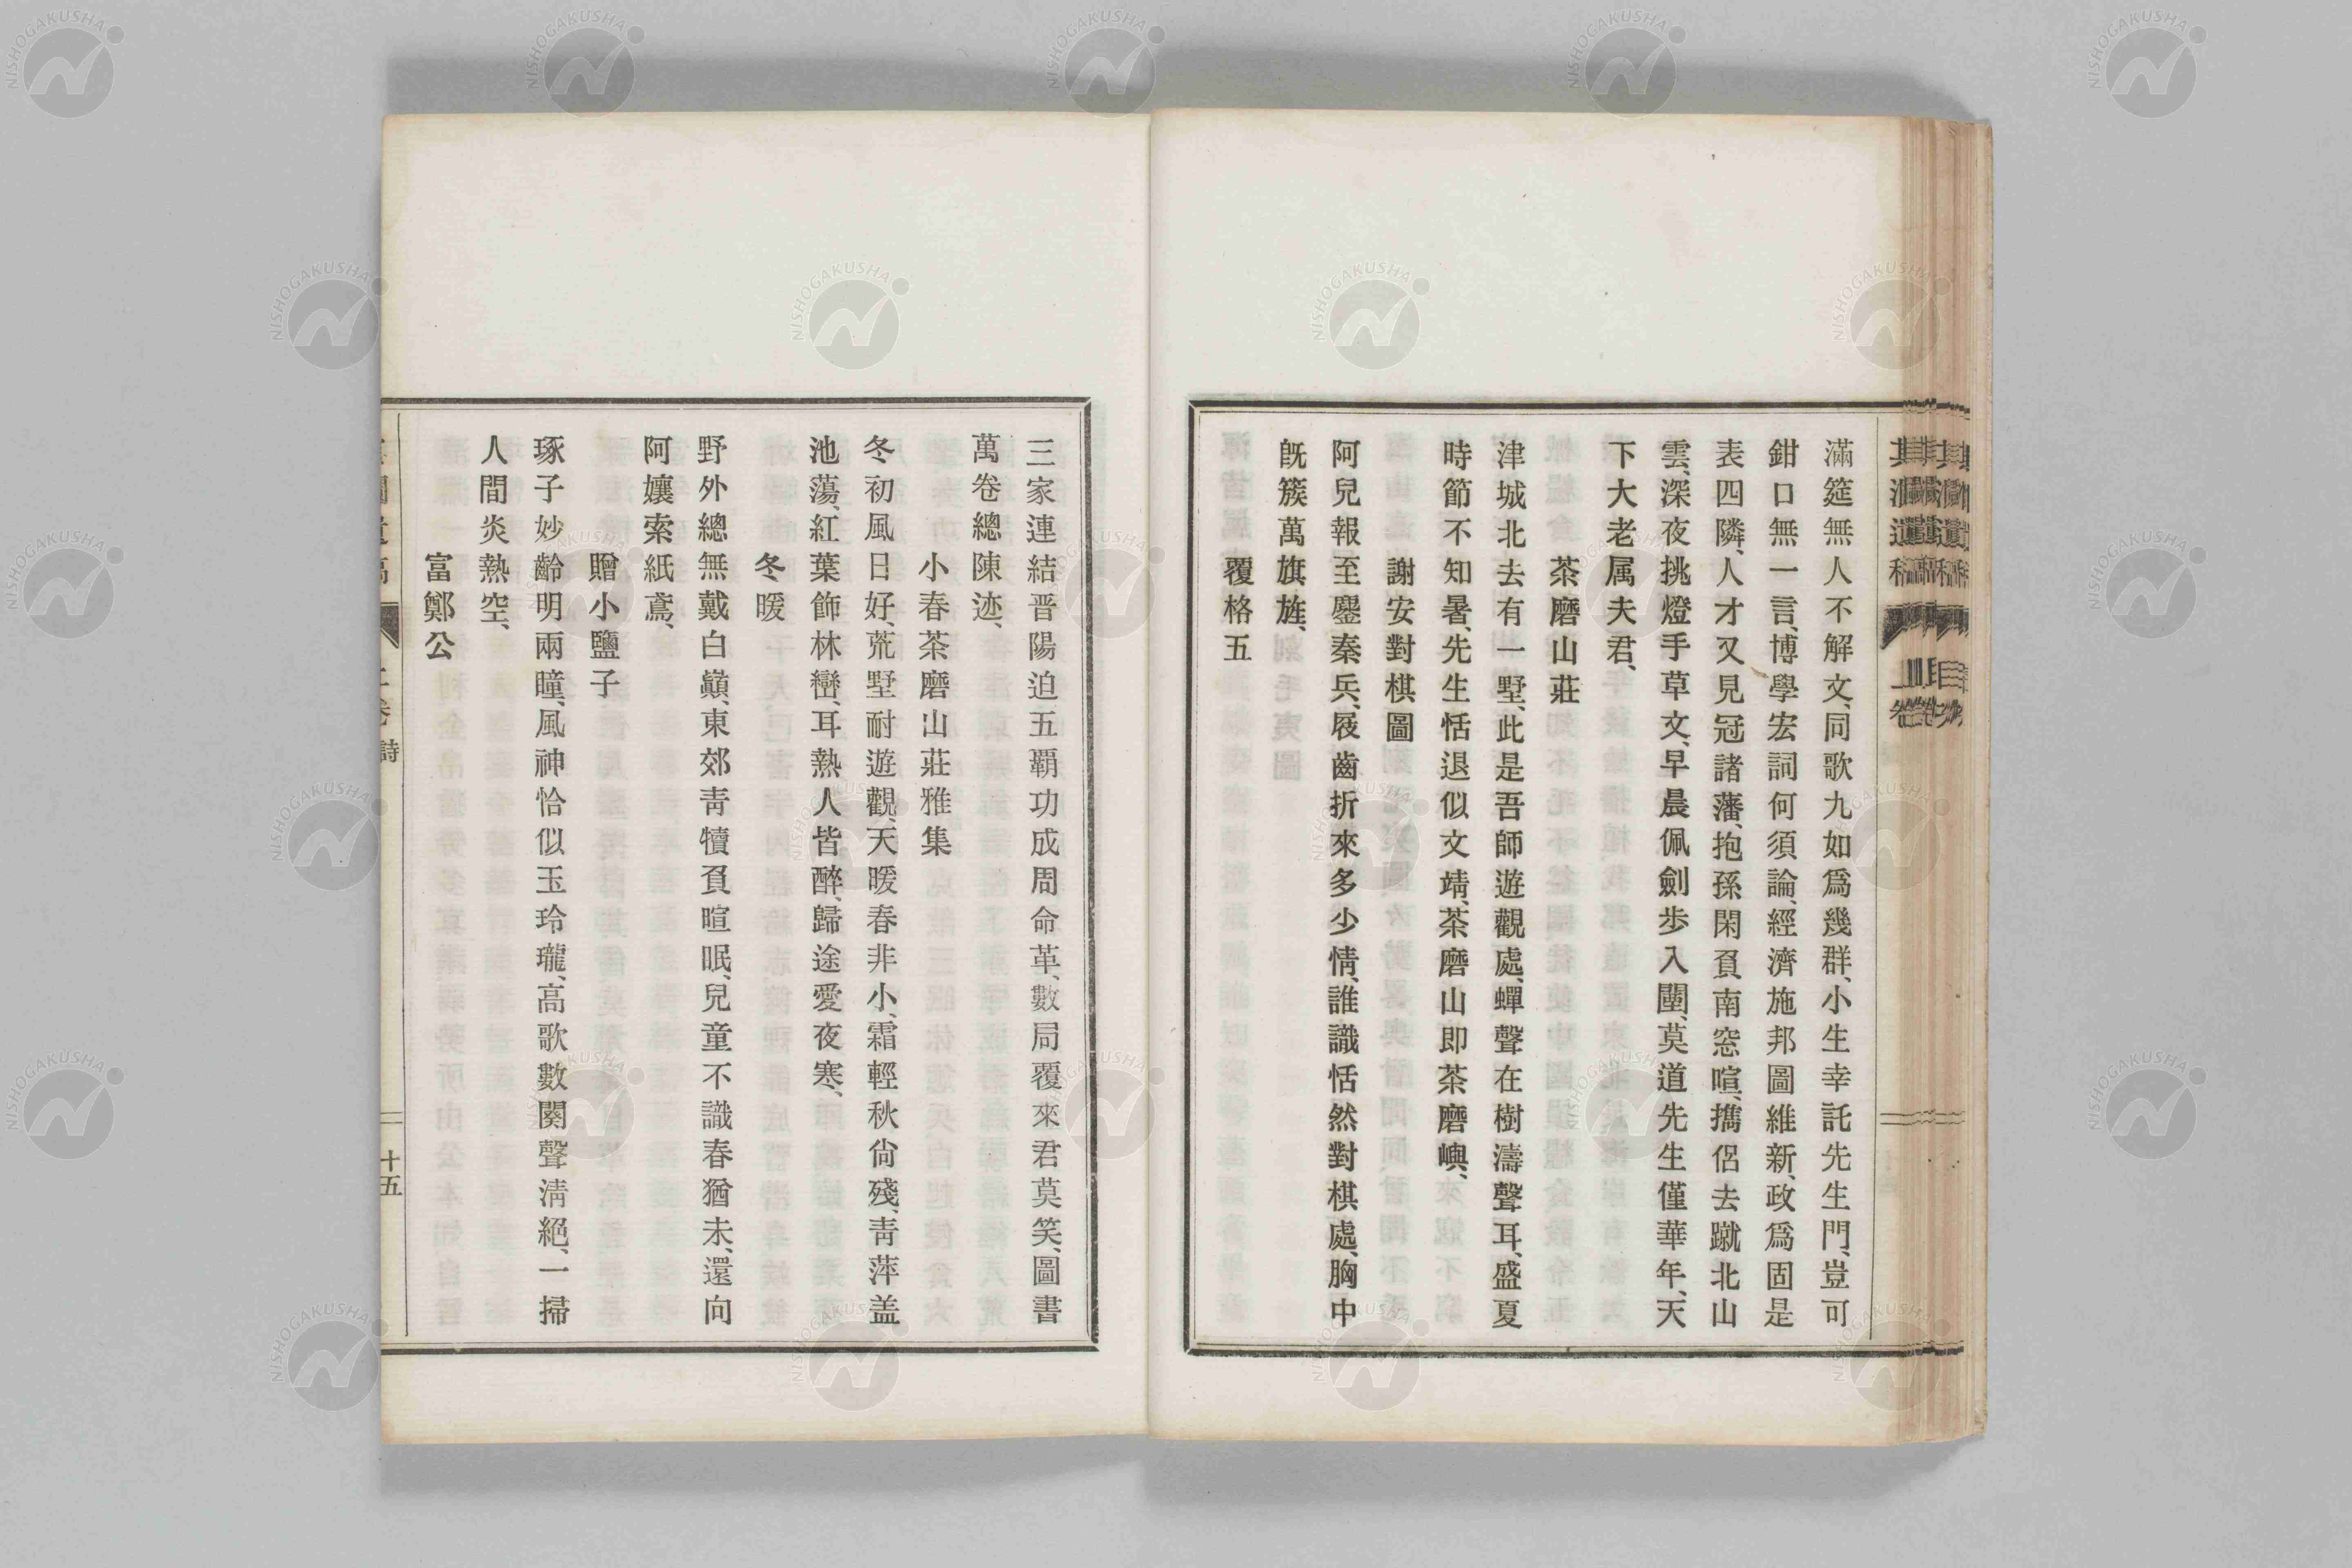 滿筵無人不解文、同歌九如爲幾群、小生幸託先生門、豈可
鉗口無一言、博學宏詞何須論、經濟施邦圖維新、政爲固是
表四隣、人才又見冠諸藩、抱孫閑負南窓暄、攜侶去蹴北山
雲、深夜挑燈手草文、早晨佩劍步入闉、莫道先生僅華年、天
下大老属夫君、
茶磨山莊
津城北去有一墅、此是吾師遊觀處、蟬聲在樹濤聲耳、盛夏
時節不知暑、先生恬退似文靖、茶磨山即茶磨嶼、
謝安對棋圖
阿兒報至鏖秦兵、屐齒折來多少情、誰識恬然對棋處、胸中
旣簇萬旗旌、
覆格五
三家連結晋陽迫、五覇功成周命革、數局覆來君莫笑、圖書
萬卷總陳迹、
小春茶磨山莊雅集
冬初風日好、荒墅耐遊觀、天暖春非小、霜輕秋尙殘、靑萍盖
池蕩、紅葉飾林巒、耳熱人皆醉、歸途愛夜寒、
冬暖
野外總無戴白巓、東郊靑犢負暄眠、兒童不識春猶未、還向
阿孃索紙鳶、
贈小鹽子
琢子妙齡明兩瞳、風神恰似玉玲瓏、高歌數闋聲淸絕、一掃
人間炎熱空、
富鄭公
詩
十五
NISHOGAKUSHA